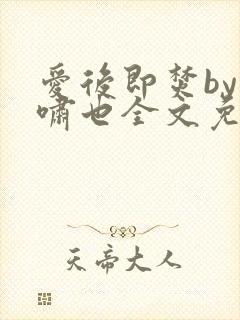 愛後即焚by
嘯也全文免
天帝大人